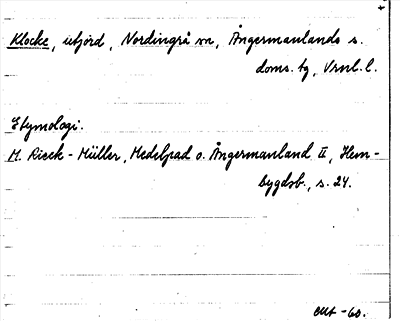 Klocke, utjord, Nordingrå sn, Ångermanlands s.
doms. tg, Vrnl. l.
Etymologi.
M. Rieck-Müller, Medelpad o. Ångermanland II, Hem-
bygdsb., s. 24.
-60.